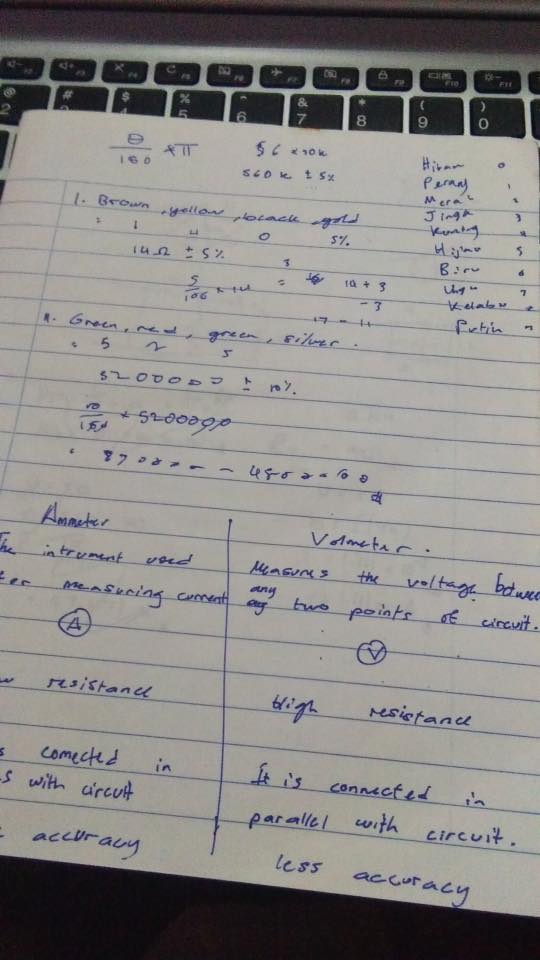 θ/180 × π
56 × 10k
560k ± 5%
Hitam 0
Perang 1
Merah 2
Jingga 3
Kuning 4
Hijau 5
Biru 6
Ungu 7
Kelabu
Putih
1. Brown, yellow, black, gold
= 1 4 0 5%
14Ω ± 5%
5/100 × 14 = 14 + 3
- 3
17 - 11
11. Green, red, green, silver.
= 5 2 5
5200000 ± 10%
10/100 × 5200000
Ammeter
The intrument used
measuring current
A
resistance
connected in
with circuit
accuracy
Volmeter.
Measures the voltage between
any
two points of circuit.
V
High resistance
It is connected in
parallel with circuit.
less accuracy